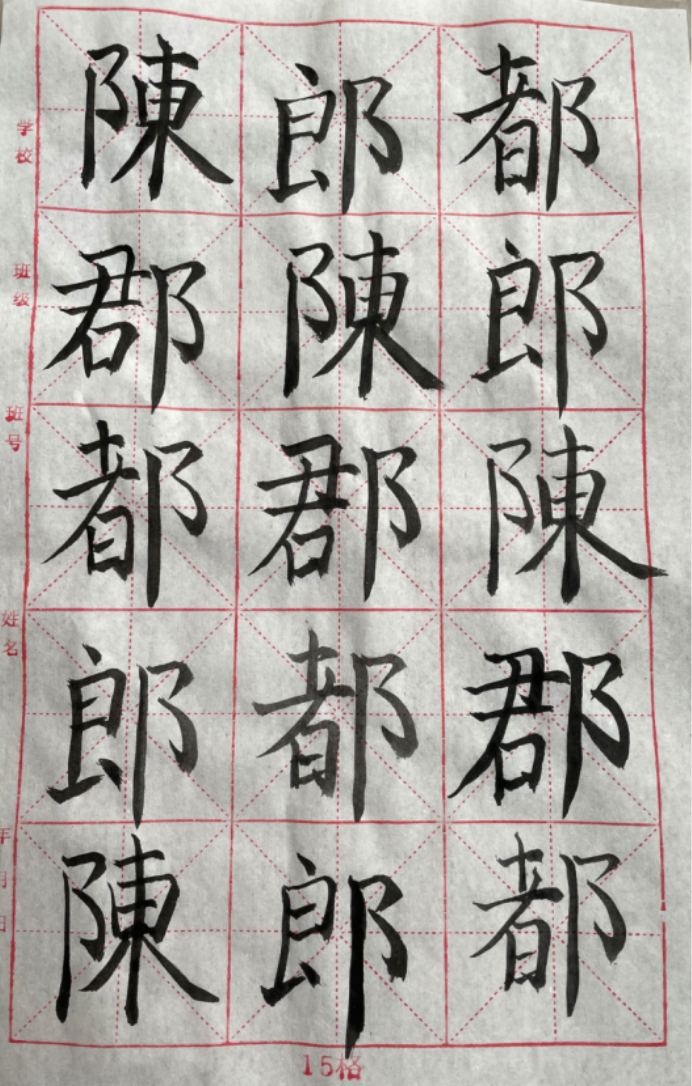 陳郎都
郡陳郎
都郡陳
郎都郡
陳郎都
学校
班级
班号
姓名
年月日
15格